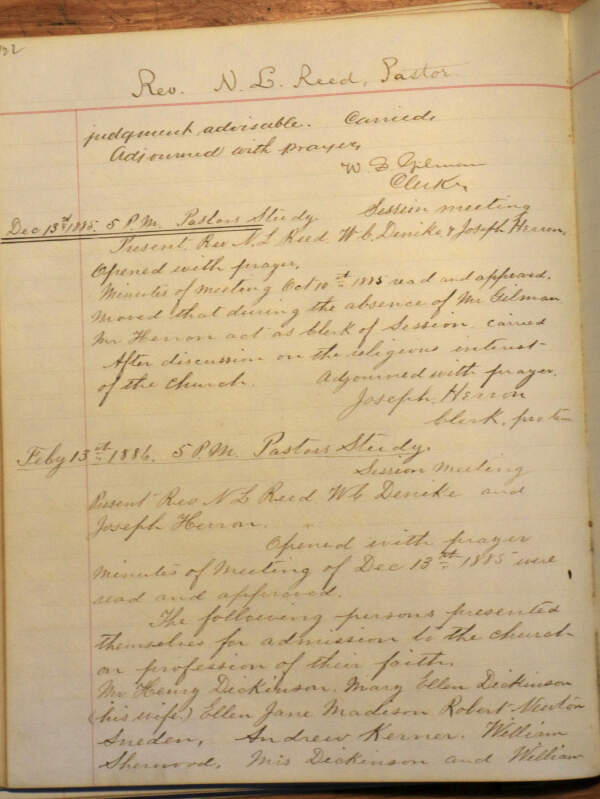 132
Rev. N. L. Reed, Pastor
judgment advisable. Carried,
Adjourned with prayer,
Clerk,
Dec 13th 1885. 5 P.M. Pastors Study. Session meeting
Present. Rev N. L Reed. W. C. Denike & Joseph Herron,
Opened with prayer,
Minutes of meeting Oct 10th 1885 read and approved.
Moved that during the absence of Mr Gilman
Mr Herron act as Clerk of Session. carried
After discussion on the religious interest
of the church. Adjourned with prayer.
Joseph Herron
Clerk, protem
Feby 13th 1886. 5 P.M. Pastors Study.
Session Meeting
Present Rev N L Reed W C Denike and
Joseph Herron.
Opened with prayer
Minutes of Meeting of Dec 13th 1885 were
read and approved.
The following persons presented
themselves for admission to the church
on profession of their faith.
Mr Henry Dickinson. Mary Ellen Dickinson
(his wife) Ellen Jane Madison Robert Merton
Sneden, Andrew Kerner. William
Sherwood, Mis Dickinson and William